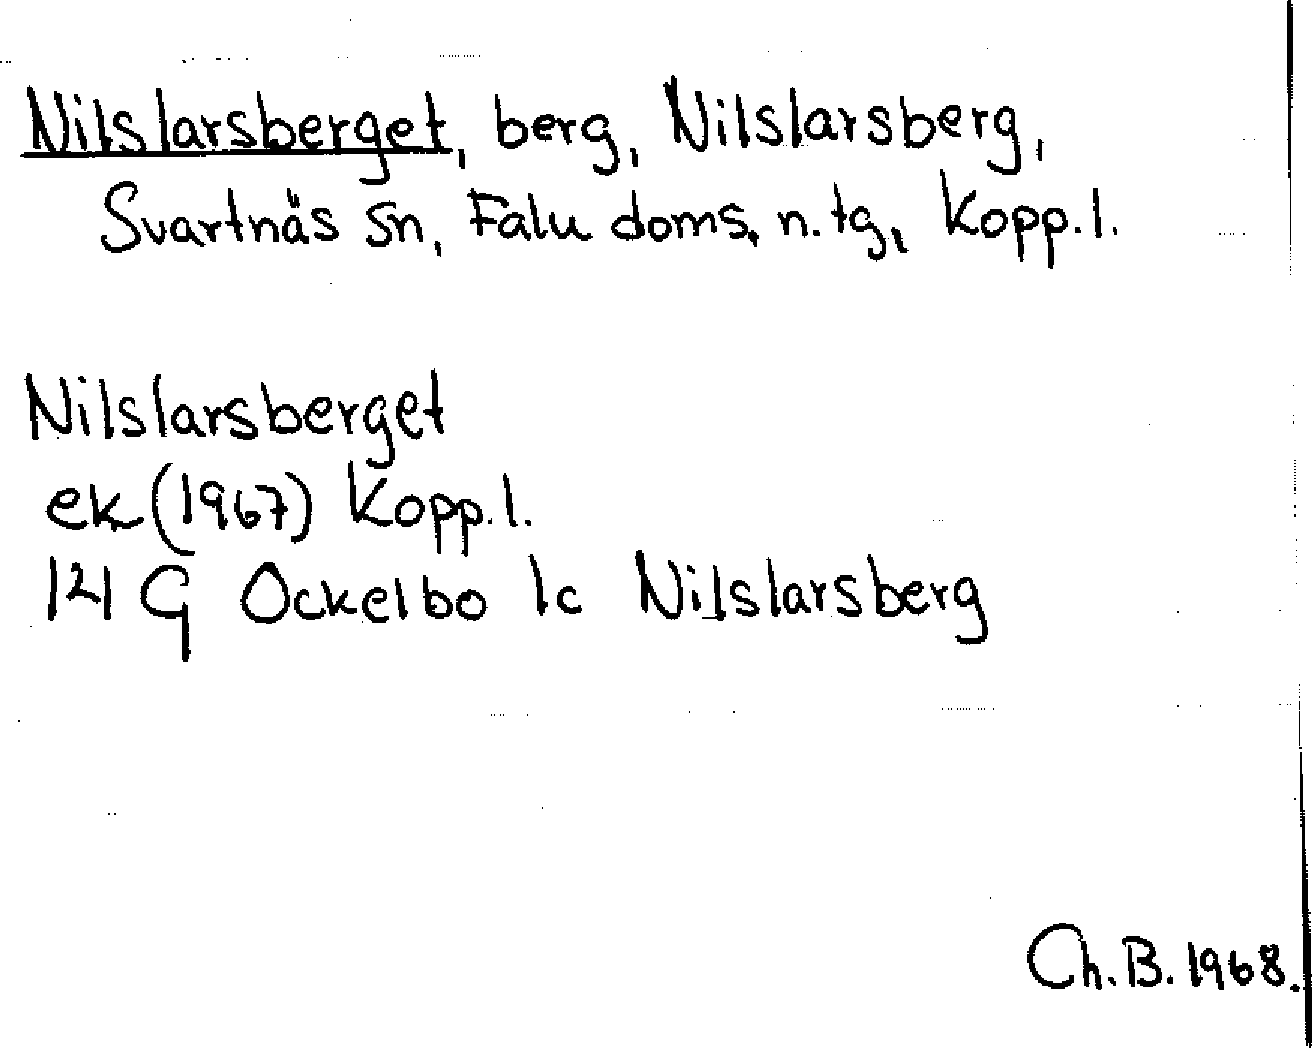 Nilslarsberget, berg, Nilslarsberg,
Svartnäs sn, Falu doms. n. tg, Kopp. l.
Nilslarsberget
ek (1967) Kopp. l.
121 G Ockelbo 1c Nilslarsberg
Ch. B. 1968.